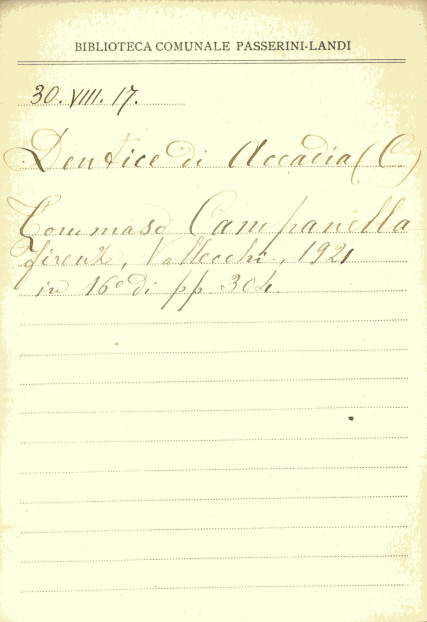 BIBLIOTECA COMUNALE PASSERINI-LANDI
30. VIII. 17.
Dentice di Accadia (C.)
Tommaso Campanella
Firenze, Vallecchi, 1921
in 16° di pp. 304.